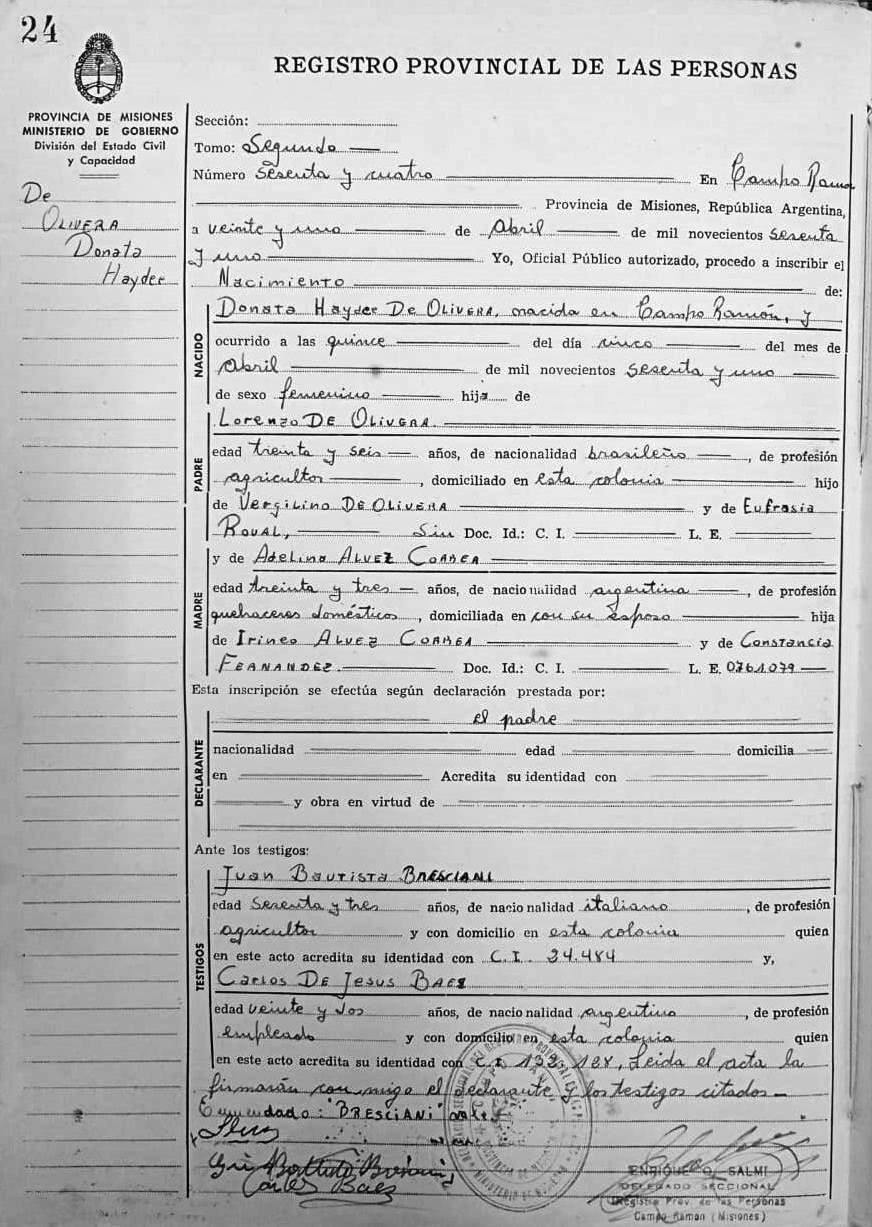 24
REGISTRO PROVINCIAL DE LAS PERSONAS
PROVINCIA DE MISIONES
MINISTERIO DE GOBIERNO
División del Estado Civil
y Capacidad
De
OLIVERA
Donata
Haydee
Sección:
Tomo: Segundo
Número sesenta y cuatro En Campo Ramon
Provincia de Misiones, República Argentina,
a veinte y uno de Abril de mil novecientos sesenta
y uno Yo, Oficial Público autorizado, procedo a inscribir el
Nacimiento de:
NACIDO
Donata Haydee DE OLIVERA, nacida en Campo Ramón, y
ocurrido a las quince del día cinco del mes de
Abril de mil novecientos sesenta y uno
de sexo femenino hija de
Lorenzo DE OLIVERA
PADRE
edad treinta y seis años, de nacionalidad brasileño, de profesión
agricultor, domiciliado en esta colonia hijo
de Vergilino DE OLIVERA y de Eufrasia
ROVAL, Sin Doc. Id.: C. I. L. E.
y de Adelina ALVEZ CORREA
MADRE
edad treinta y tres años, de nacionalidad argentina, de profesión
quehaceres domésticos, domiciliada en con su esposo hija
de Irineo ALVEZ CORREA y de Constancia
FERNANDEZ. Doc. Id.: C. I. L. E. 0761.079
Esta inscripción se efectúa según declaración prestada por:
el padre
DECLARANTE
nacionalidad edad domicilia
en Acredita su identidad con
y obra en virtud de
Ante los testigos:
TESTIGOS
Juan Bautista BRESCIANI
edad sesenta y tres años, de nacionalidad italiano, de profesión
agricultor y con domicilio en esta colonia quien
en este acto acredita su identidad con C. I. 34.484 y,
Carlos DE Jesus BAEZ
edad veinte y dos años, de nacionalidad argentino, de profesión
empleado y con domicilio en esta colonia quien
en este acto acredita su identidad con C. I. Leida el acta la
firmarán conmigo el declarante y los testigos citados
Enmendado: "BRESCIANI" vale
Carlos Baez
ENRIQUE O. SALMI
DELEGADO SECCIONAL
Registro Prov. de las Personas
Campo Ramon (Misiones)